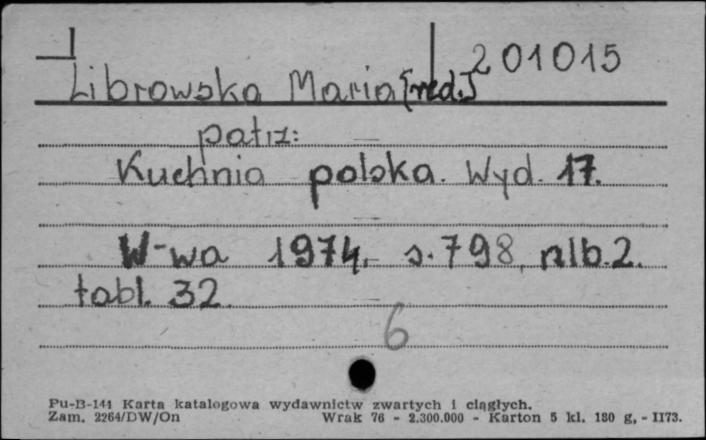 201015
Librowska Maria [red.]
patrz:
Kuchnia polska. Wyd. 17.
W-wa 1974. s. 798, nlb. 2.
tabl. 32.
6
Pu-B-144 Karta katalogowa wydawnictw zwartych i ciągłych.
Zam. 2264/DW/On Wrak 76 - 2.300.000 - Karton 5 kl. 180 g, - II73.